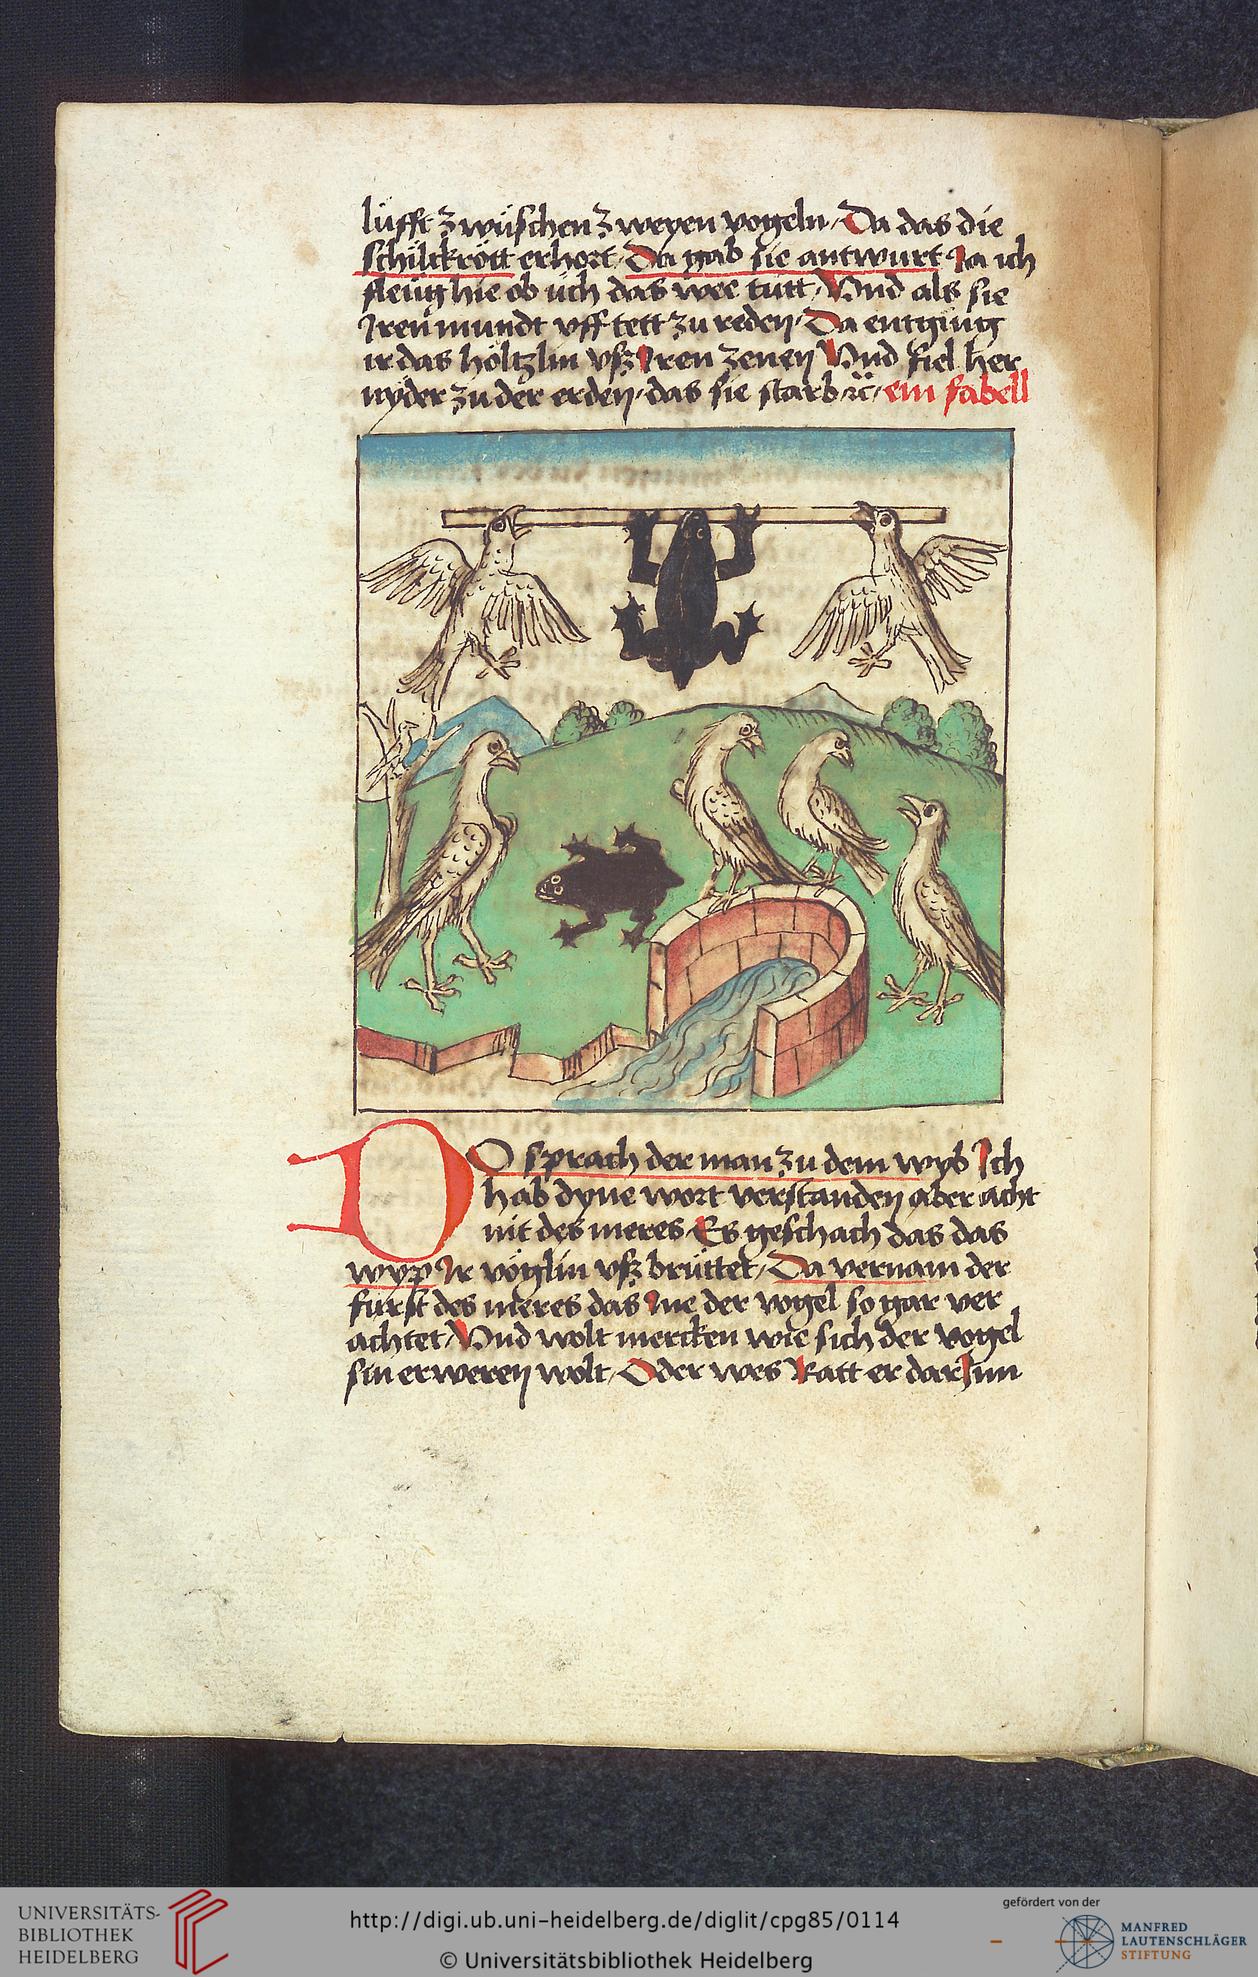 lüfft zwüschen zweyen vogeln / Da das die
schiltkrött erhort / Da gab sie antwurt Ja ich
fleüg hie ob üch das wee tütt / Vnd als sie
Iren mundt vff tett zu reden / Da entging
ir das höltzlin vsz Iren zenen Vnd fiel her
nyder zu der erden / das sie starb ꝛc̈ / ein fabell
DO sprach der man zu dem wyb Ich
hab dyne wort verstanden aber acht
nit des meres / Es geschach das das
wyp Ir vöglin vsz brüttet / Da vernam der
fürst des meres das Ine der vogel so gar ver
achtet / Vnd wolt mercken wie sich der vogel
sin erweren wolt / Oder wes Ratt er dar Inn
UNIVERSITÄTS-
BIBLIOTHEK
HEIDELBERG
http://digi.ub.uni-heidelberg.de/diglit/cpg85/0114
© Universitätsbibliothek Heidelberg
gefördert von der
MANFRED
LAUTENSCHLÄGER
STIFTUNG